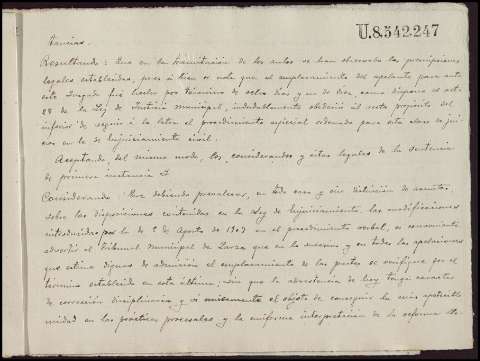 U.8.542.247
tancias.
Resultando: Que en la tramitación de los autos se han observado las prescripciones
legales establecidas, pues si bien se nota que el emplazamiento del apelante para ante
este Juzgado fué hecho por término de ocho dias y no de diez como dispone el art.
28 de la Ley de Justicia municipal, indudablemente obedeció al recto propósito del
inferior de seguir á la letra el procedimiento especial ordenado para esta clase de jui-
cios en la de Enjuiciamiento civil.
Aceptando, del mismo modo, los considerandos y citas legales de la sentencia
de primera instancia y
Considerando: Que debiendo prevalecer, en todo caso y sin distinción de asuntos,
sobre las disposiciones contenidas en la Ley de Enjuiciamiento, las modificaciones
introducidas por la de 5 de Agosto de 1907 en el procedimiento verbal, es conveniente
advertir al Tribunal municipal de que en lo sucesivo y en todas las apelaciones
que estime dignas de admisión el emplazamiento de las partes se verifique por el
término establecido en esta última; sin que la advertencia de hoy tenga caracter
de corrección disciplinaria y si unicamente el objeto de conseguir la más apetecible
unidad en las prácticas procesales y la uniforme interpretación de la reforma